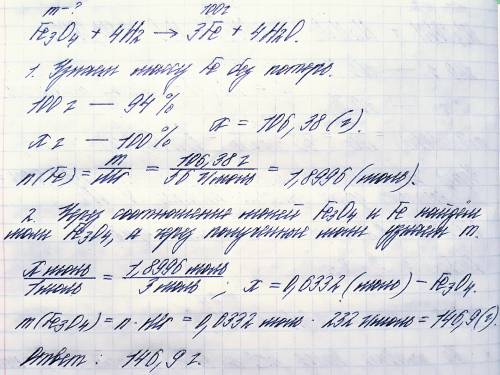 m - ?   100г
Fe₃O₄ + 4H₂ → 3Fe + 4H₂O.
1. Узнаем массу Fe без потерь.
100 г — 94 %
x г — 100 %   x = 106,38 (г).
n(Fe) = m/Mr = 106,38 г/56 г/моль = 1,8996 (моль).
2. Через соотношение молей Fe₃O₄ и Fe найдём
моли Fe₃O₄, а через полученные моли узнаем m.
x моль/1 моль = 1,8996 моль/3 моль ; x = 0,6332 (моль) – Fe₃O₄.
m(Fe₃O₄) = n · Mr = 0,6332 моль · 232 г/моль = 146,9 (г)
Ответ : 146,9 г.